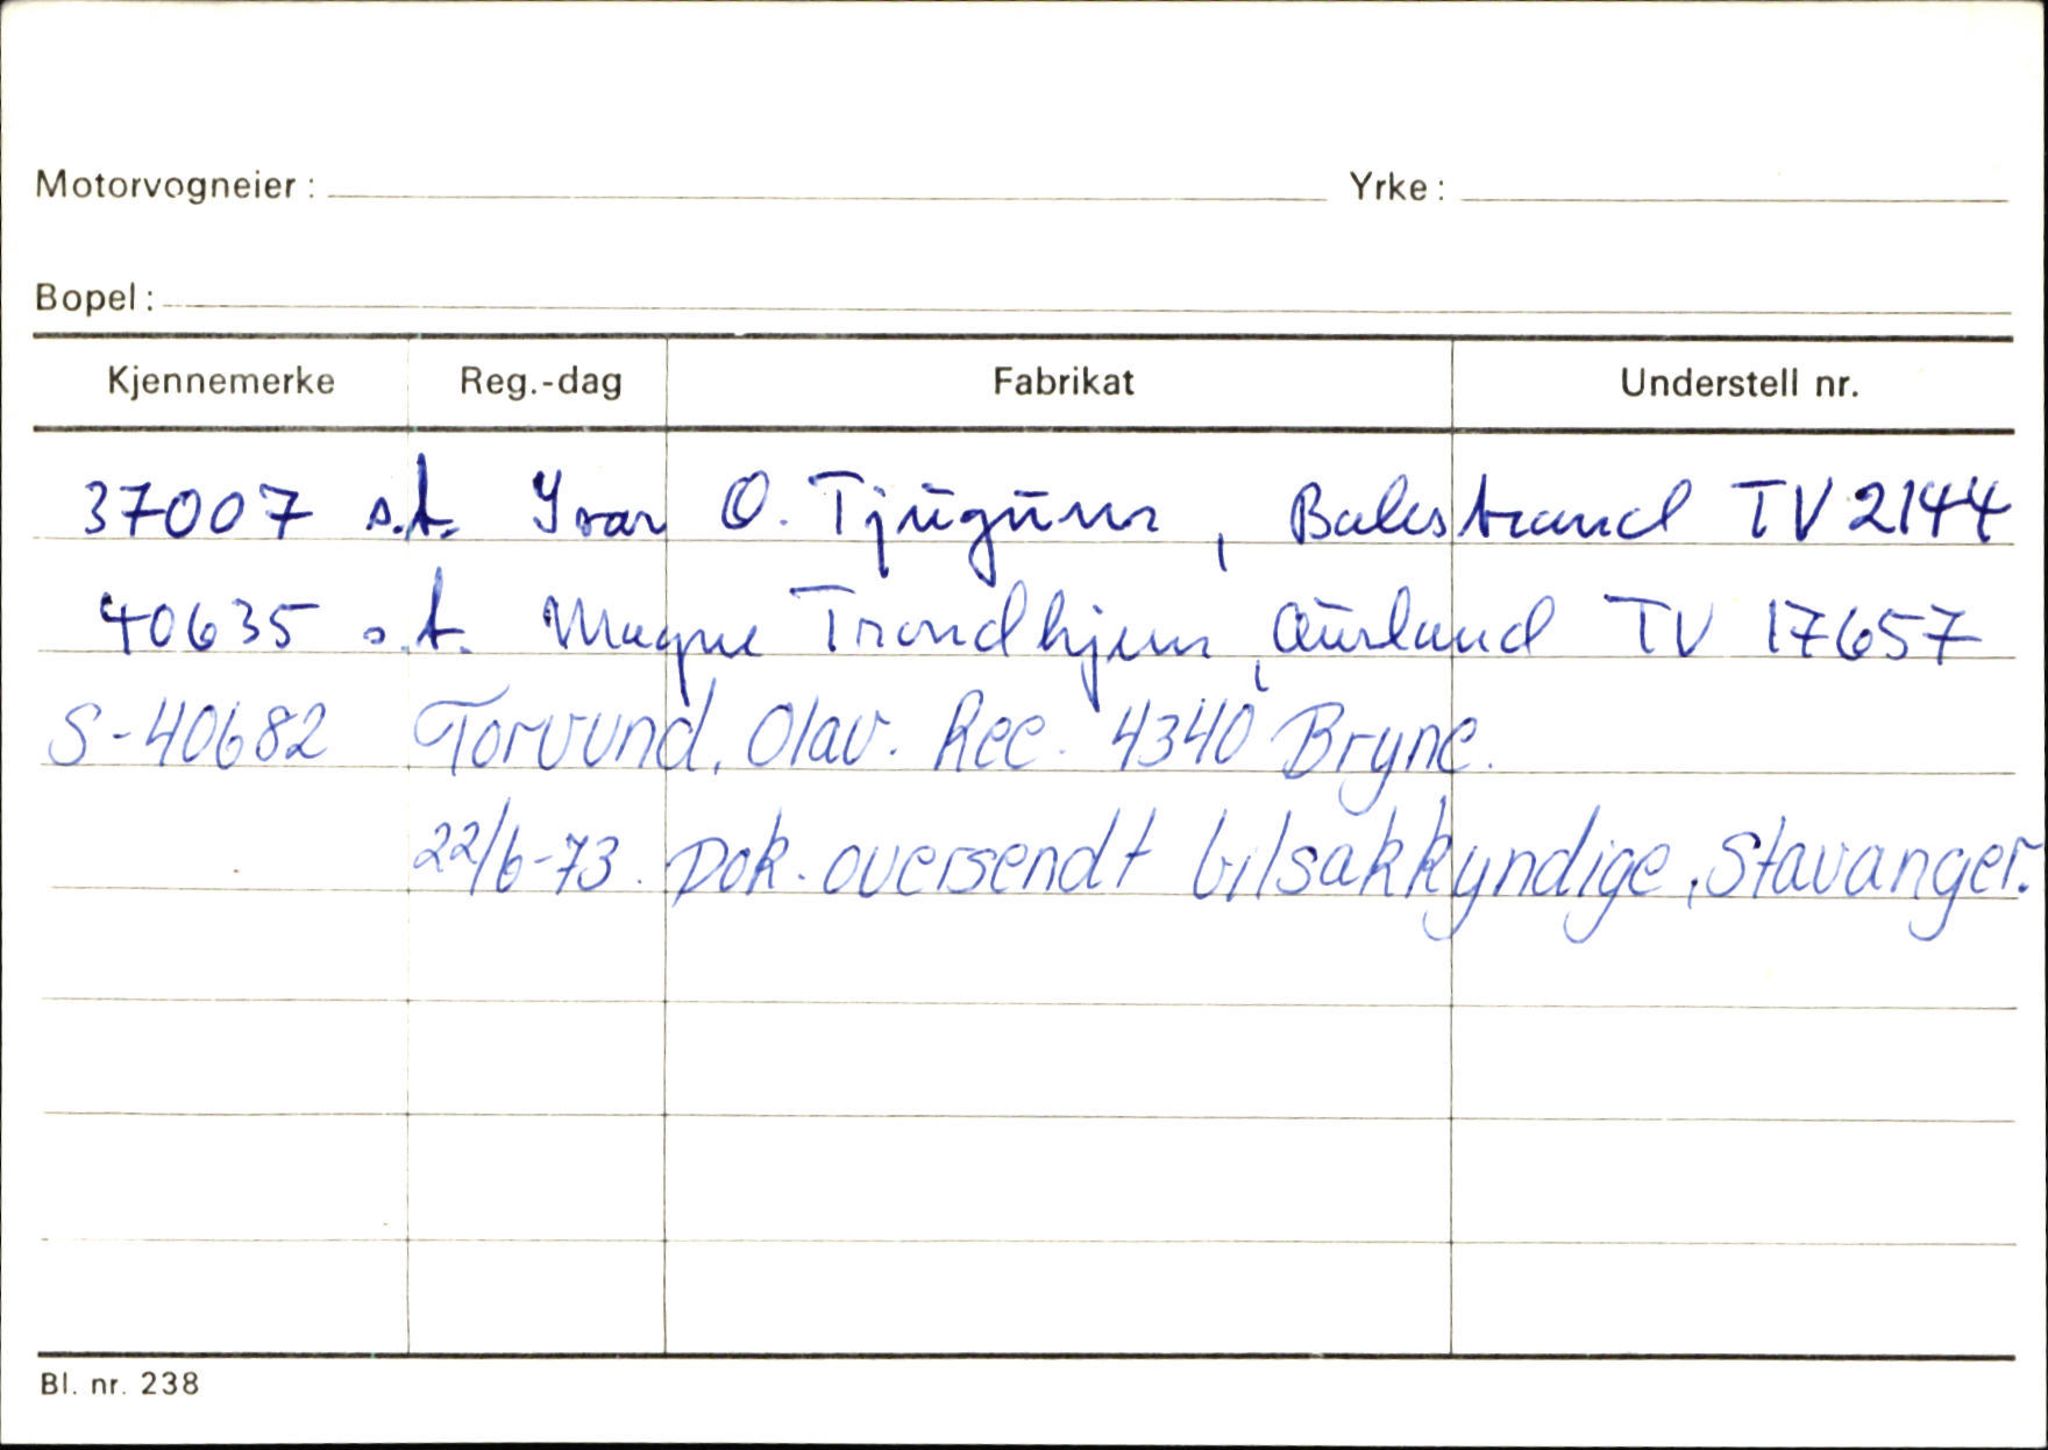 Motorvogneier: Yrke:
Bopel:
Kjennemerke Reg.-dag Fabrikat Understell nr.
37007 s.t. Ivar O. Tjugum, Balestrand TV 2144
40635 s.t. Magne Trondhjem, Aurland TV 17657
S-40682 Torvund, Olav. Ree. 4340 Bryne.
22/6-73. Dok. oversendt bilsakkyndige, Stavanger.
Bl. nr. 238